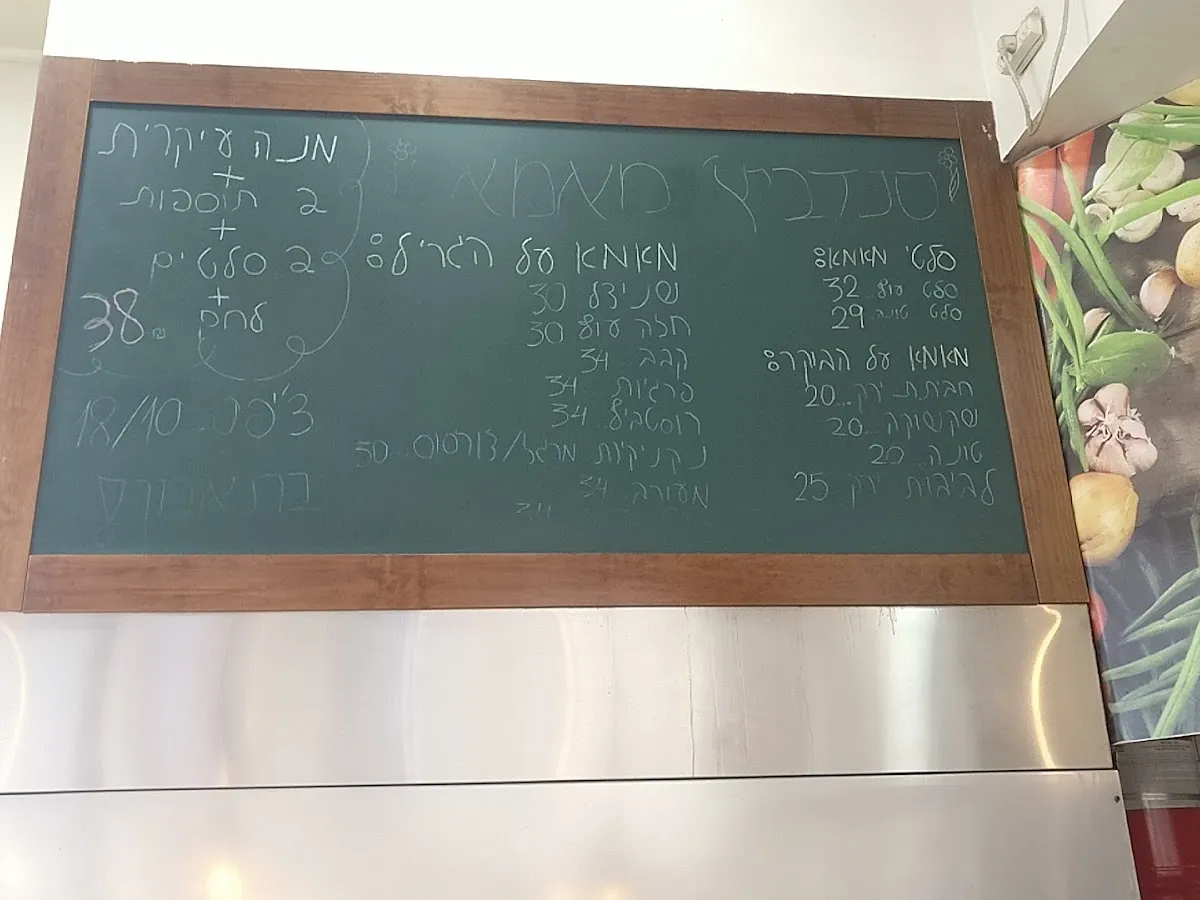 סנדביץ' מאמא
סלטי מאמא:
סלט עוף 32
סלט טונה.. 29
מאמא על הבוקר:
חביתת ירק...20
שקשוקה...20
טונה.. 20
לביבות ירק.. 25
מאמא על הגריל:
שניצל 30
חזה עוף 30
קבב... 34
פרגיות.. 34
רוסטביף.. 34
נקניקיות מרגז/צ'וריסוס...30
מעורב.. 34
מנה עיקרית
+
2 תוספות
+
2 סלטים
+
לחם
38 ₪
צ'יפס.. 18/10